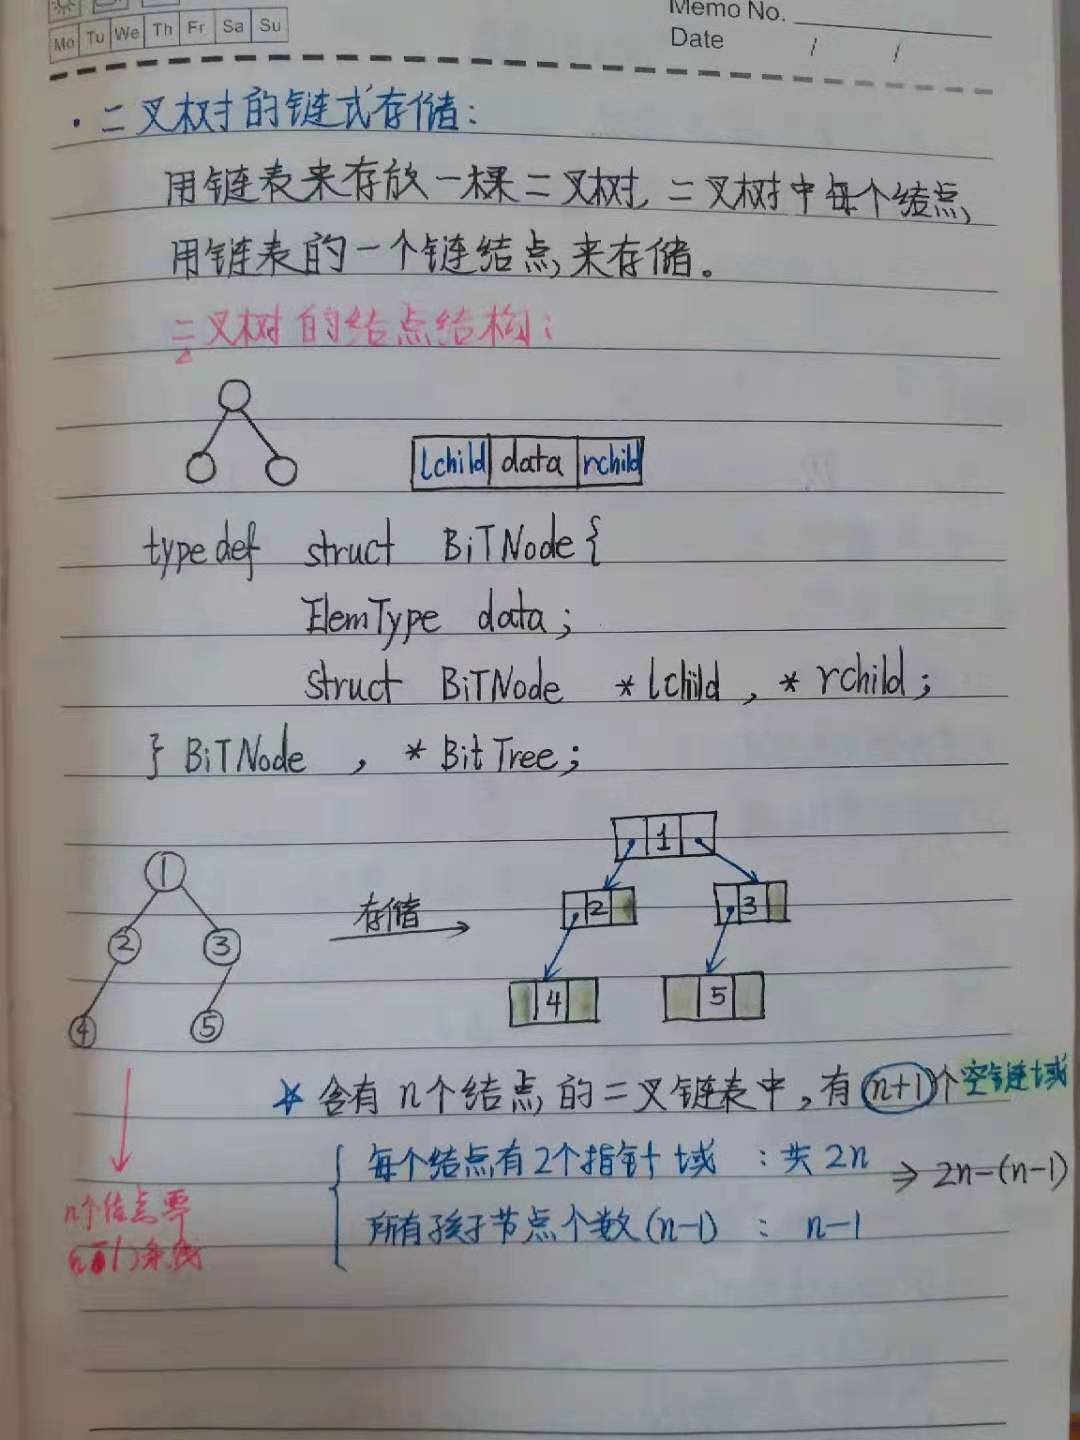 Memo No.
Mo Tu We Th Fr Sa Su
Date / /
·二叉树的链式存储:
用链表来存放一棵二叉树,二叉树中每个结点,
用链表的一个链结点,来存储。
二叉树的结点结构:
lchild data rchild
typedef struct BiTNode{
ElemType data;
struct BiTNode *lchild, *rchild;
} BiTNode, *BitTree;
1
1
2 3 存储 2 3
4 5 4 5
☆ 含有n个结点的二叉链表中,有n+1个空链域
每个结点有2个指针域 : 共2n ⇒ 2n-(n-1)
所有孩子节点个数(n-1) : n-1
n个结点需
(n-1)条线